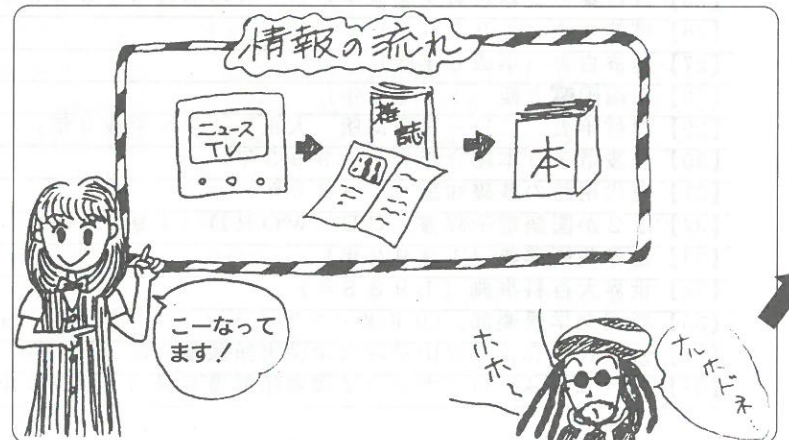 情報の流れ
ニュース
TV
雑誌
本
こーなって
ます!
ホホ〜
ナルホドネ